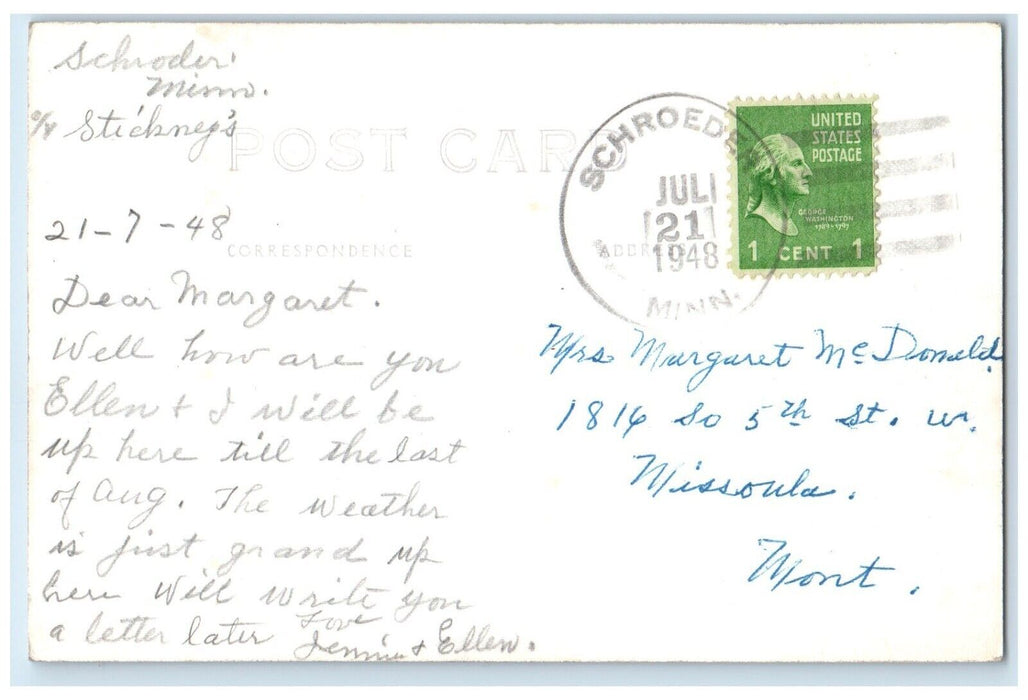 Schroder
Minn.
c/o Stickney's
POST CARD
21-7-48
CORRESPONDENCE
Dear Margaret.
Well how are you
Ellen + I will be
up here till the last
of Aug. The weather
is just grand up
here Will write you
a letter later Love
Jennie + Ellen.
SCHROEDER
JUL
21
1948
MINN.
ADDRESS
UNITED
STATES
POSTAGE
GEORGE
WASHINGTON
1789-1797
1 CENT 1
Mrs Margaret McDonald
1816 So 5th St. W.
Missoula.
Mont.